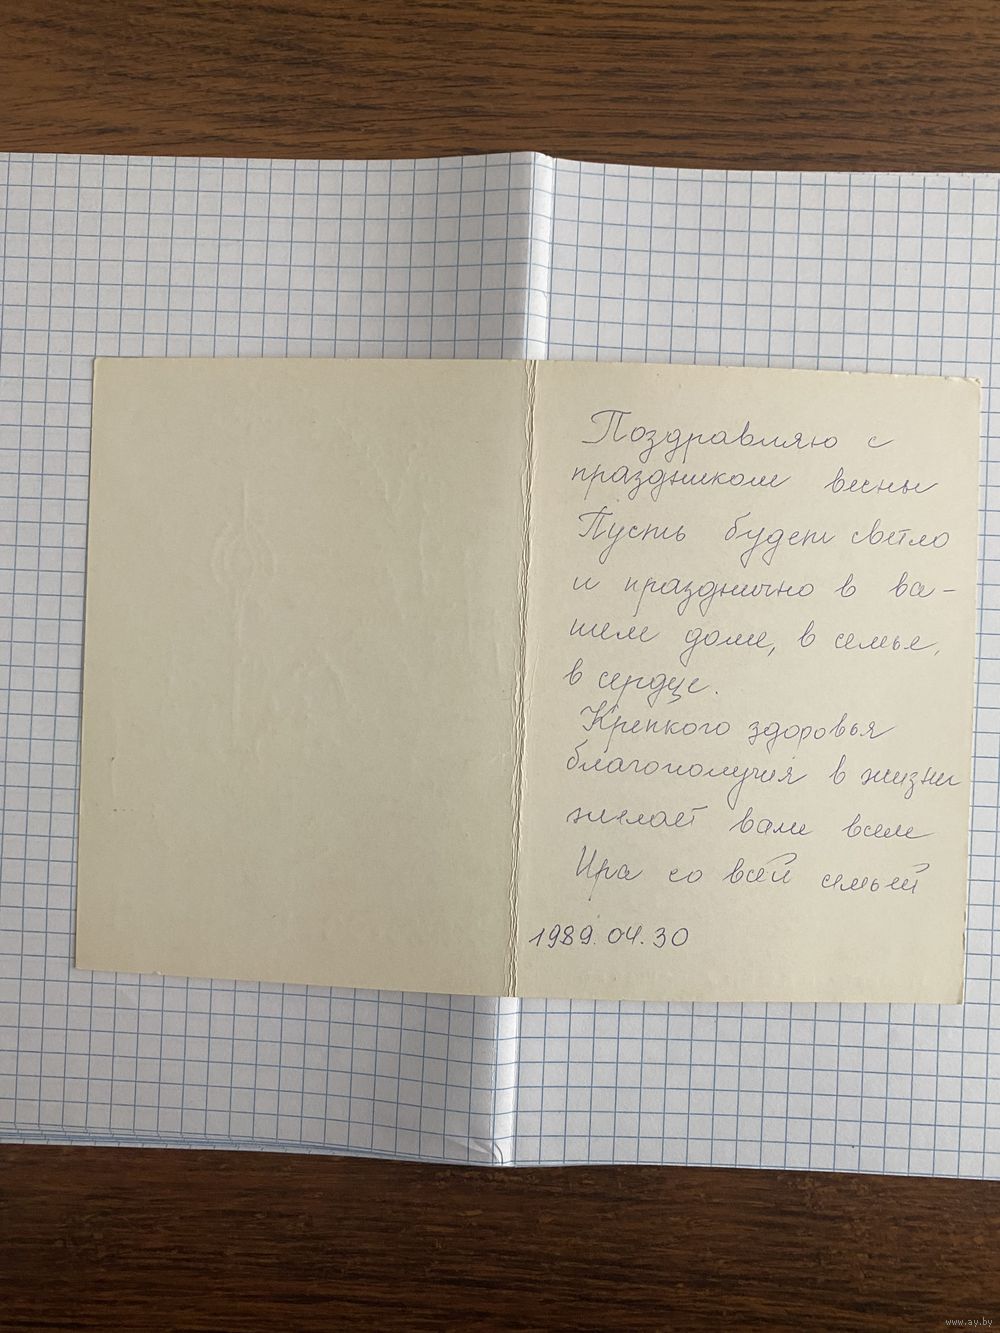 Поздравляю с
праздником весны
Пусть будет светло
и празднично в ва-
шем доме, в семье,
в сердце.
Крепкого здоровья
благополучия в жизни
желает вам всем
Ира со всей семьёй
1989.04.30
www.ay.by